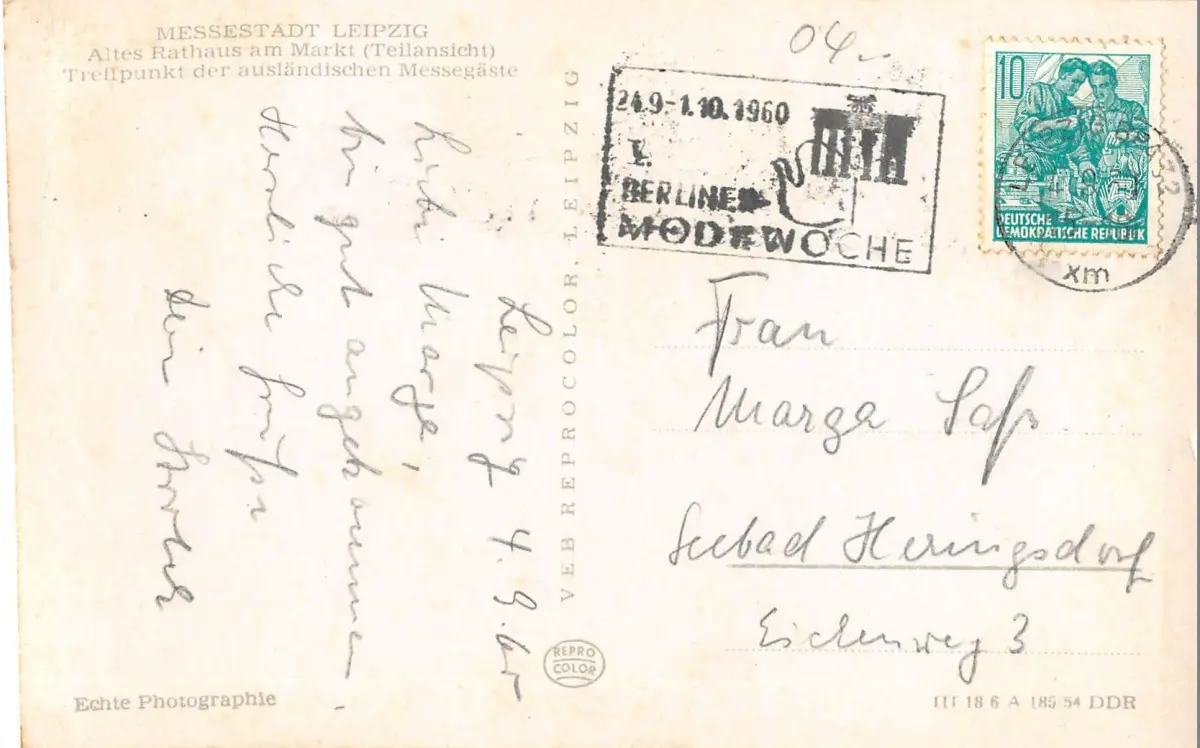 MESSESTADT LEIPZIG
Altes Rathaus am Markt (Teilansicht)
Treffpunkt der ausländischen Messegäste
Leipzig 4.9.60
Liebe Marga,
bin gut angekommen.
Herzliche Grüße
Dein
VEB REPROCOLOR, LEIPZIG
REPRO
COLOR
Echte Photographie
04
24.9.-1.10.1960
I.
BERLINER
MODEWOCHE
10
DEUTSCHE
DEMOKRATISCHE REPUBLIK
xm
Frau
Marga Saß
Seebad Heringsdorf
Eichenweg 3
III 18 6 A 185 54 DDR